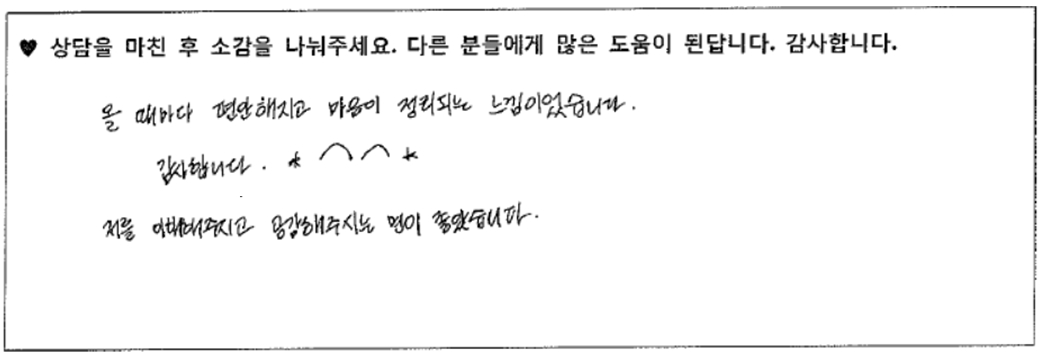 ♥ 상담을 마친 후 소감을 나눠주세요. 다른 분들에게 많은 도움이 된답니다. 감사합니다.
올 때마다 편안해지고 마음이 정리되는 느낌이었습니다.
감사합니다. * ⌒⌒ *
저를 이해해주시고 공감해주시는 면이 좋았습니다.